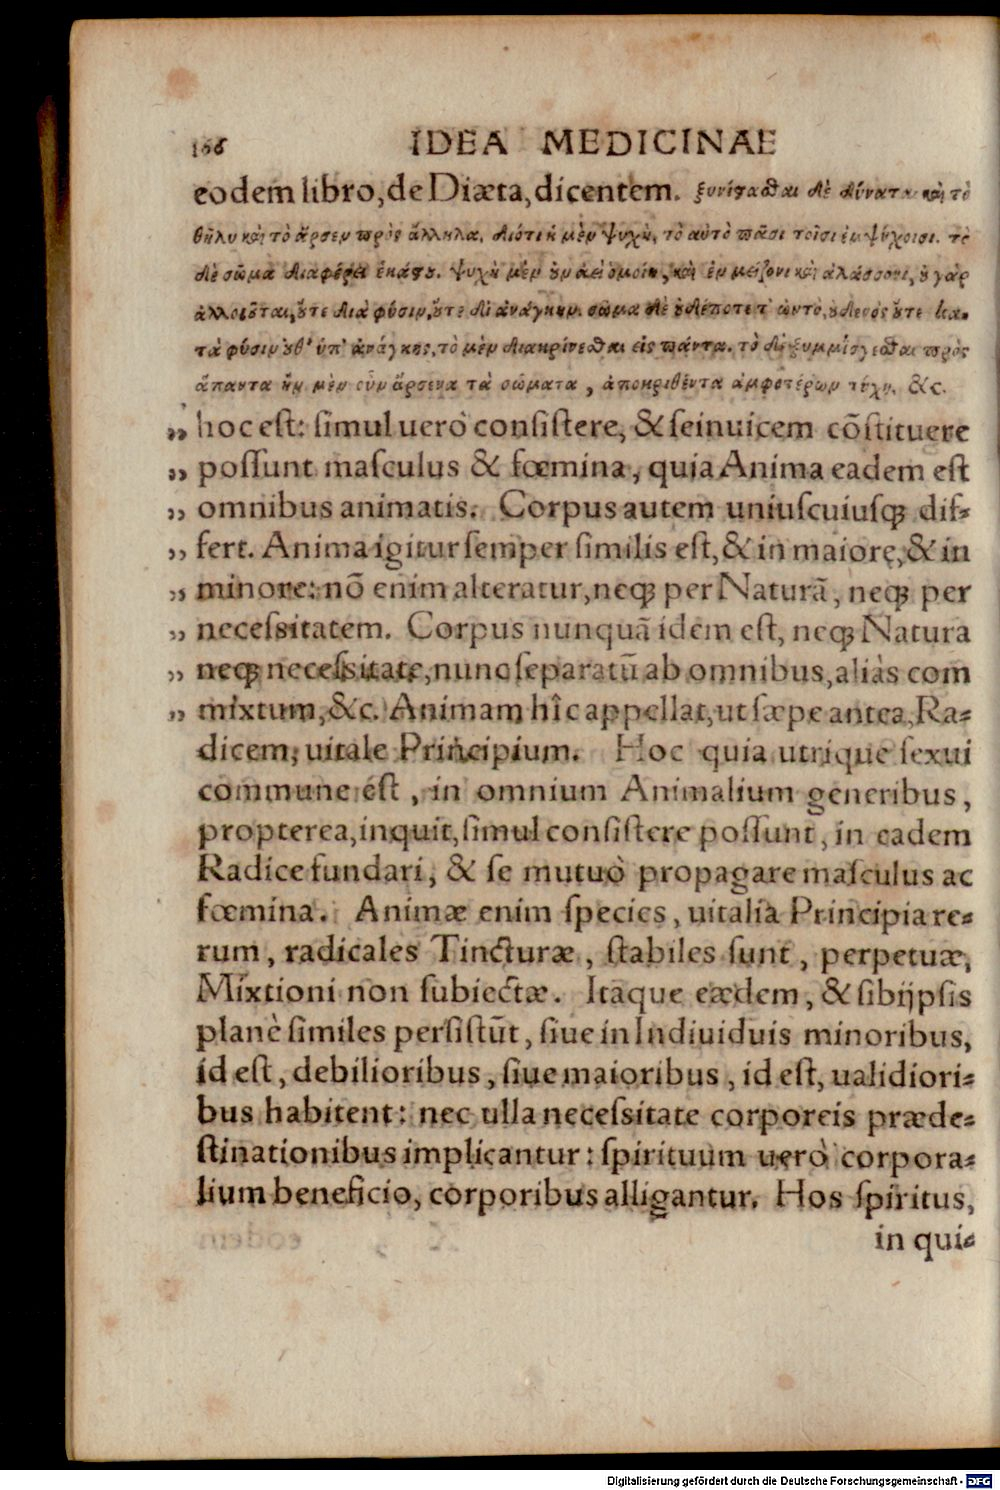 166 IDEA MEDICINAE
eodem libro, de Diæta, dicentem. ξυνίςαϑαι δὲ δύναται καὶ τὸ
θῆλυ καὶ τὸ ἄρσεν πρὸς ἄλληλα, διότι ἡ μὲν ψυχὴ, τὸ αὐτὸ πᾶσι τοῖσι ἐμψύχοισι. τὸ
δὲ σῶμα διαφέρει ἑκάςου. ψυχὴ μὲν οὖν ἀεὶ ὁμοίη, καὶ ἐν μείζονι καὶ ἐλάσσονι, οὐ γὰρ
ἀλλοιοῦται, οὔτε διὰ φύσιν, οὔτε δι ἀνάγκην. σῶμα δὲ οὐδέποτε τ ὠυτὸ, οὐδενὸς οὔτε κα-
τὰ φύσιν οὐθ' ὑπ' ἀνάγκης, τὸ μὲν διακρίνεϑαι εἰς πάντα. τὸ δὲ ξυμμίσγεϑαι πρὸς
ἅπαντα ἢν μὲν οὖν ἄρσενα τὰ σώματα, ἀποκριθέντα ἀμφοτέρων τύχῃ, &c.
„ hoc est: simul uerò consistere, & se inuicem cõstituere
„ possunt masculus & fœmina, quia Anima eadem est
„ omnibus animatis. Corpus autem uniuscuiusq; dif-
„ fert. Anima igitur semper similis est, & in maiore, & in
„ minore: nõ enim alteratur, neq; per Naturã, neq; per
„ necessitatem. Corpus nunquã idem est, neq; Natura
„ neq; necessitate, nunc separatũ ab omnibus, aliàs com
„ mixtum, &c. Animam hîc appellat, ut sæpe antea, Ra-
dicem, uitale Principium. Hoc quia utrique sexui
commune est, in omnium Animalium generibus,
propterea, inquit, simul consistere possunt, in eadem
Radice fundari, & se mutuò propagare masculus ac
fœmina. Animæ enim species, uitalia Principia re-
rum, radicales Tincturæ, stabiles sunt, perpetuæ,
Mixtioni non subiectæ. Itaque eædem, & sibijpsis
planè similes persistũt, siue in Indiuiduis minoribus,
id est, debilioribus, siue maioribus, id est, ualidiori-
bus habitent: nec ulla necessitate corporeis præde-
stinationibus implicantur: spirituum uerò corpora-
lium beneficio, corporibus alligantur. Hos spiritus,
in qui-
Digitalisierung gefördert durch die Deutsche Forschungsgemeinschaft - DFG